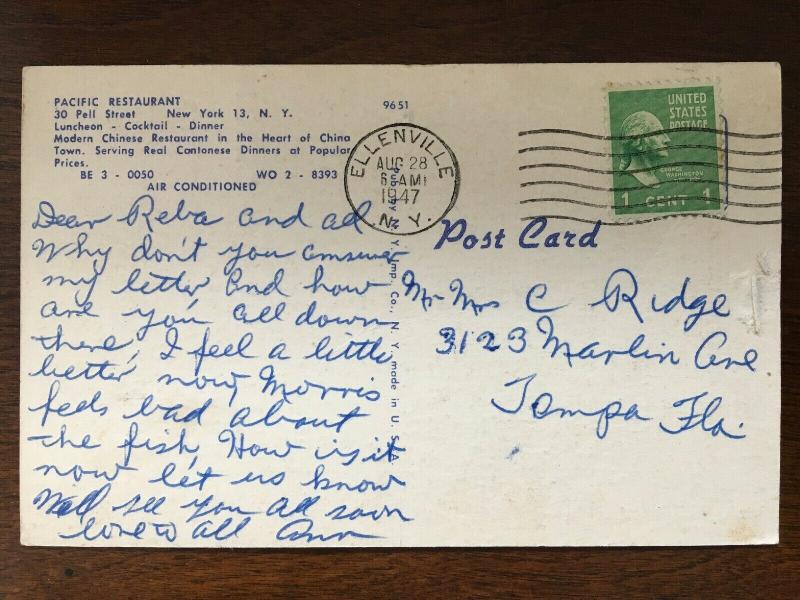 PACIFIC RESTAURANT
30 Pell Street New York 13, N. Y.
Luncheon - Cocktail - Dinner
Modern Chinese Restaurant in the Heart of China
Town. Serving Real Cantonese Dinners at Popular
Prices.
BE 3 - 0050 WO 2 - 8393
AIR CONDITIONED
9651
ELLENVILLE
AUG 28
6 AM
1947
N. Y.
UNITED
STATES
POSTAGE
GEORGE
WASHINGTON
1 CENT 1
Post Card
Dear Reba and al
Why don't you answer
my letter and how
are you all down
there, I feel a little
better now, Morris
feels bad about
the fish, How is it
now let us know
Will see you all soon
love to all Ann
Mr Mrs C Ridge
3123 Marlin Ave
Tampa Fla.
Imp. Co., N. Y. made in U. S. A.